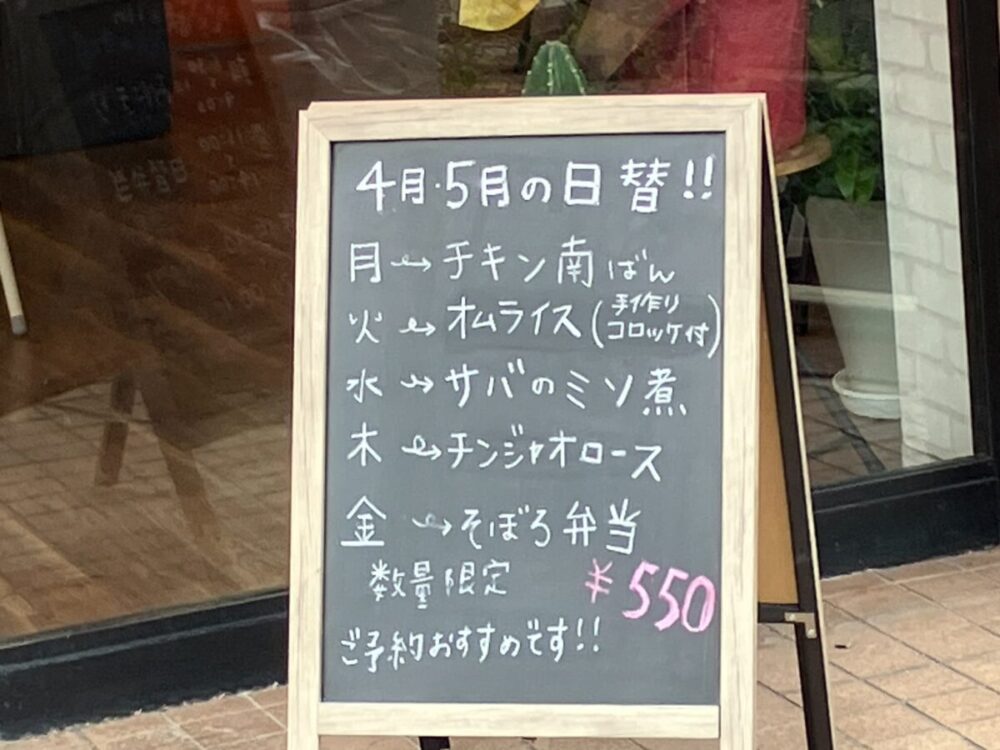 4月・5月の日替!!
月→チキン南ばん
火→オムライス(手作りコロッケ付)
水→サバのミソ煮
木→チンジャオロース
金→そぼろ弁当
数量限定 ¥550
ご予約おすすめです!!
日替弁当